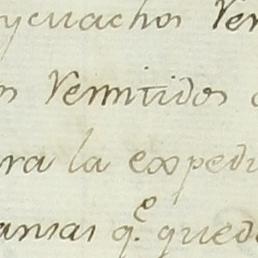 ycuachos Ver
os Vermitidos
ra la expedi
ansas q.e qued